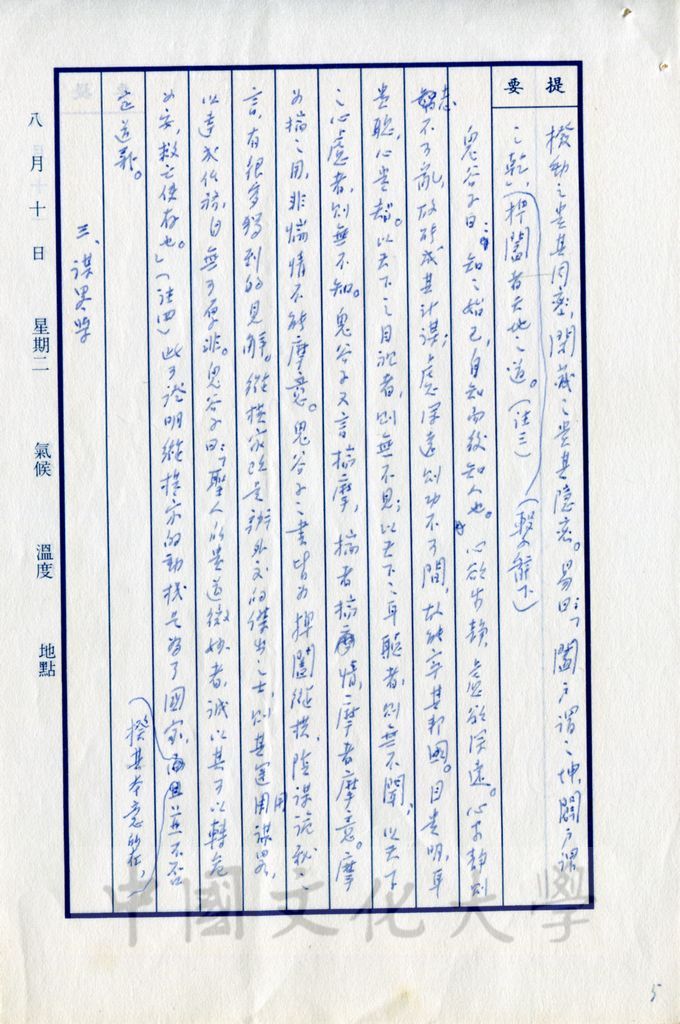 5
提要
揆動之貴其周密,閉藏之貴其隱密。易曰:「闔戶謂之坤,闢戶謂
之乾」,捭闔者天地之道。(註三)(繫辭下)
鬼谷子曰:「知之始己,自知而後知人也。心欲安靜,慮欲深遠。心安靜則
不可亂,故能成其計謀;慮深遠則功不可間,故能宰其邦國。目貴明,耳
貴聰,心貴智。以天下之目視者,則無不見;以天下之耳聽者,則無不聞;以天下
之心慮者,則無不知。鬼谷子又言揣摩,揣者揣情,摩者摩意。摩
為揣之用,非揣情不能摩意。鬼谷子之書皆為捭闔縱橫、陰謀詭秘之
言,有很多獨到的見解。縱橫家改是辦外交的傑出之士,則其運用謀畧,
以達成任務,自無可厚非。鬼谷子曰:「聖人所貴道微妙者,誠以其可以轉危
為安,救亡使存也。」(註四)此可證明縱橫家的動機是為了國家,而且並不否
定道義。
揆其本意的在,
三、謀畧學
八月十日 星期二 氣候 溫度 地點
中國文化大學